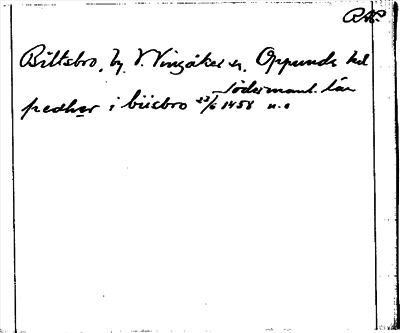 RAP
Biltsbro, by V. Vingåker sn, Oppunda hd
Södermanl. län
pedher i biisbro 23/6 1458 u.s